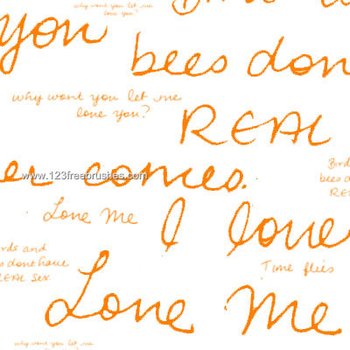 why wont you let me
love you?
Birds
you
bees don
why wont you let me
love you?
REAL
Birds
bees do
REAL
www.123freebrushes.com
er comes.
Love Me
I love
rds and
s dont have
REAL Sex.
Time flies
Love Me
why wont you let me